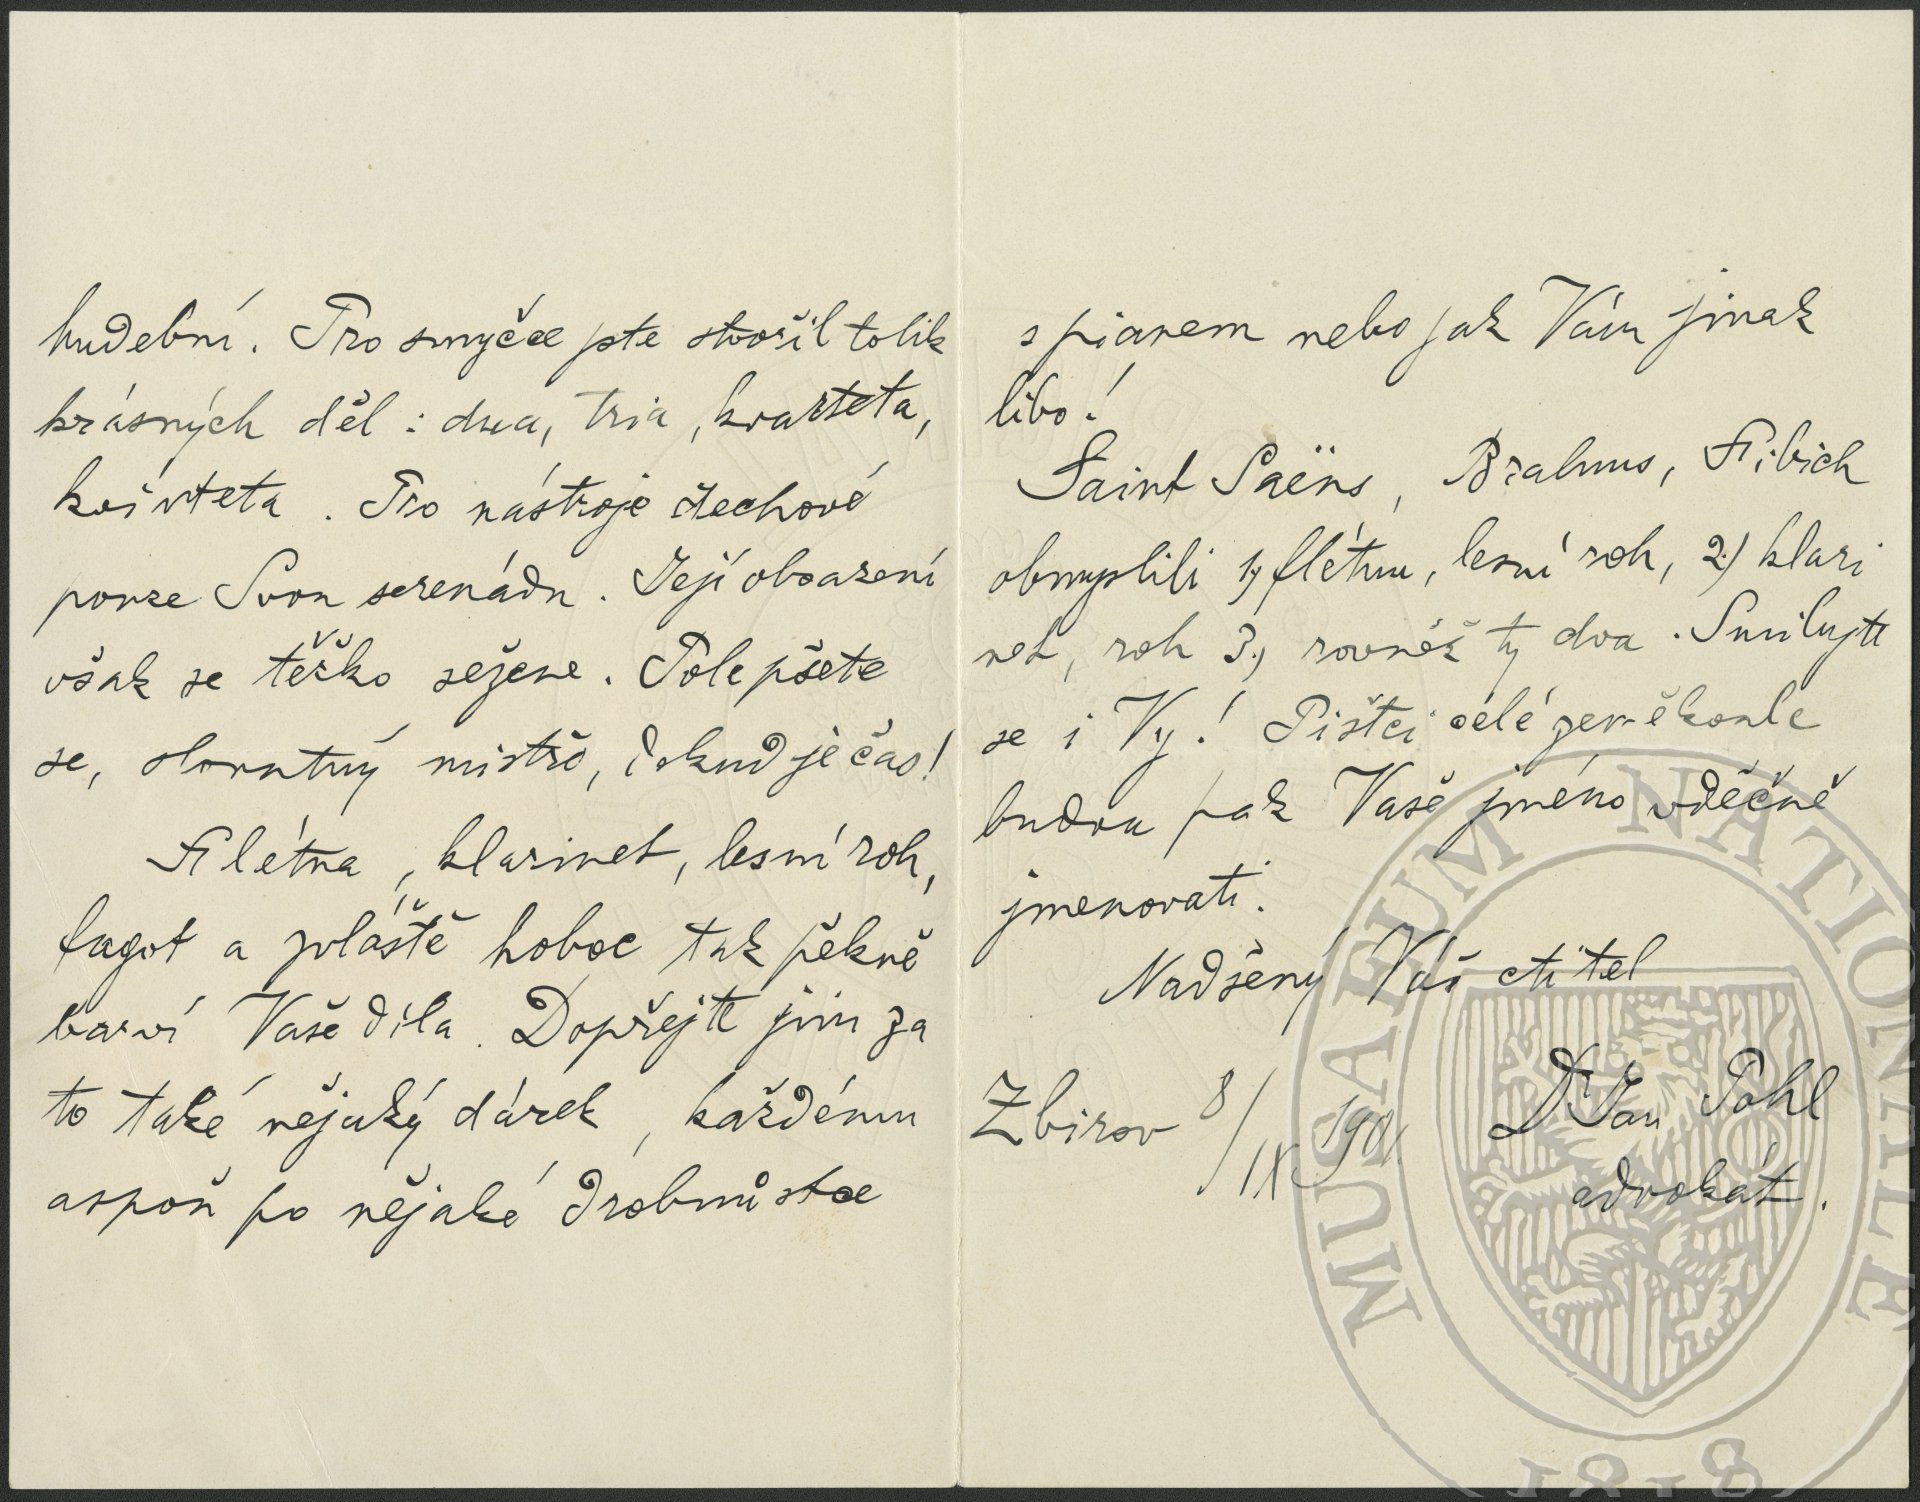 hudební. Pro smyčce jste stvořil tolik
krásných děl : dua, tria, kvarteta,
kvinteta. Pro nástroje dechové
pouze Svou serenádu. Její obsazení
však se těžko sežene. Polepšete
se, slovutný mistře, dokud je čas!
Flétna, klarinet, lesní roh,
fagot a zvláště hoboe tak pěkně
barví Vaše díla. Dopřejte jim za
to také nějaký dárek, každému
aspoň po nějaké drobnůstce
s pianem nebo jak Vám jinak
libo!
Saint Saëns, Brahms, Fibich
obmyslili 1) flétnu, lesní roh, 2) klari
net, roh 3.) rovněž ty dva. Smilujte
se i Vy! Pištci celé zeměkoule
budou pak Vaše jméno vděčně
jmenovati.
Nadšený Váš ctitel
Zbirov 8/IX 1901. Dr Jan Pohl
advokát.
MUSAEUM NATIONALE
1818